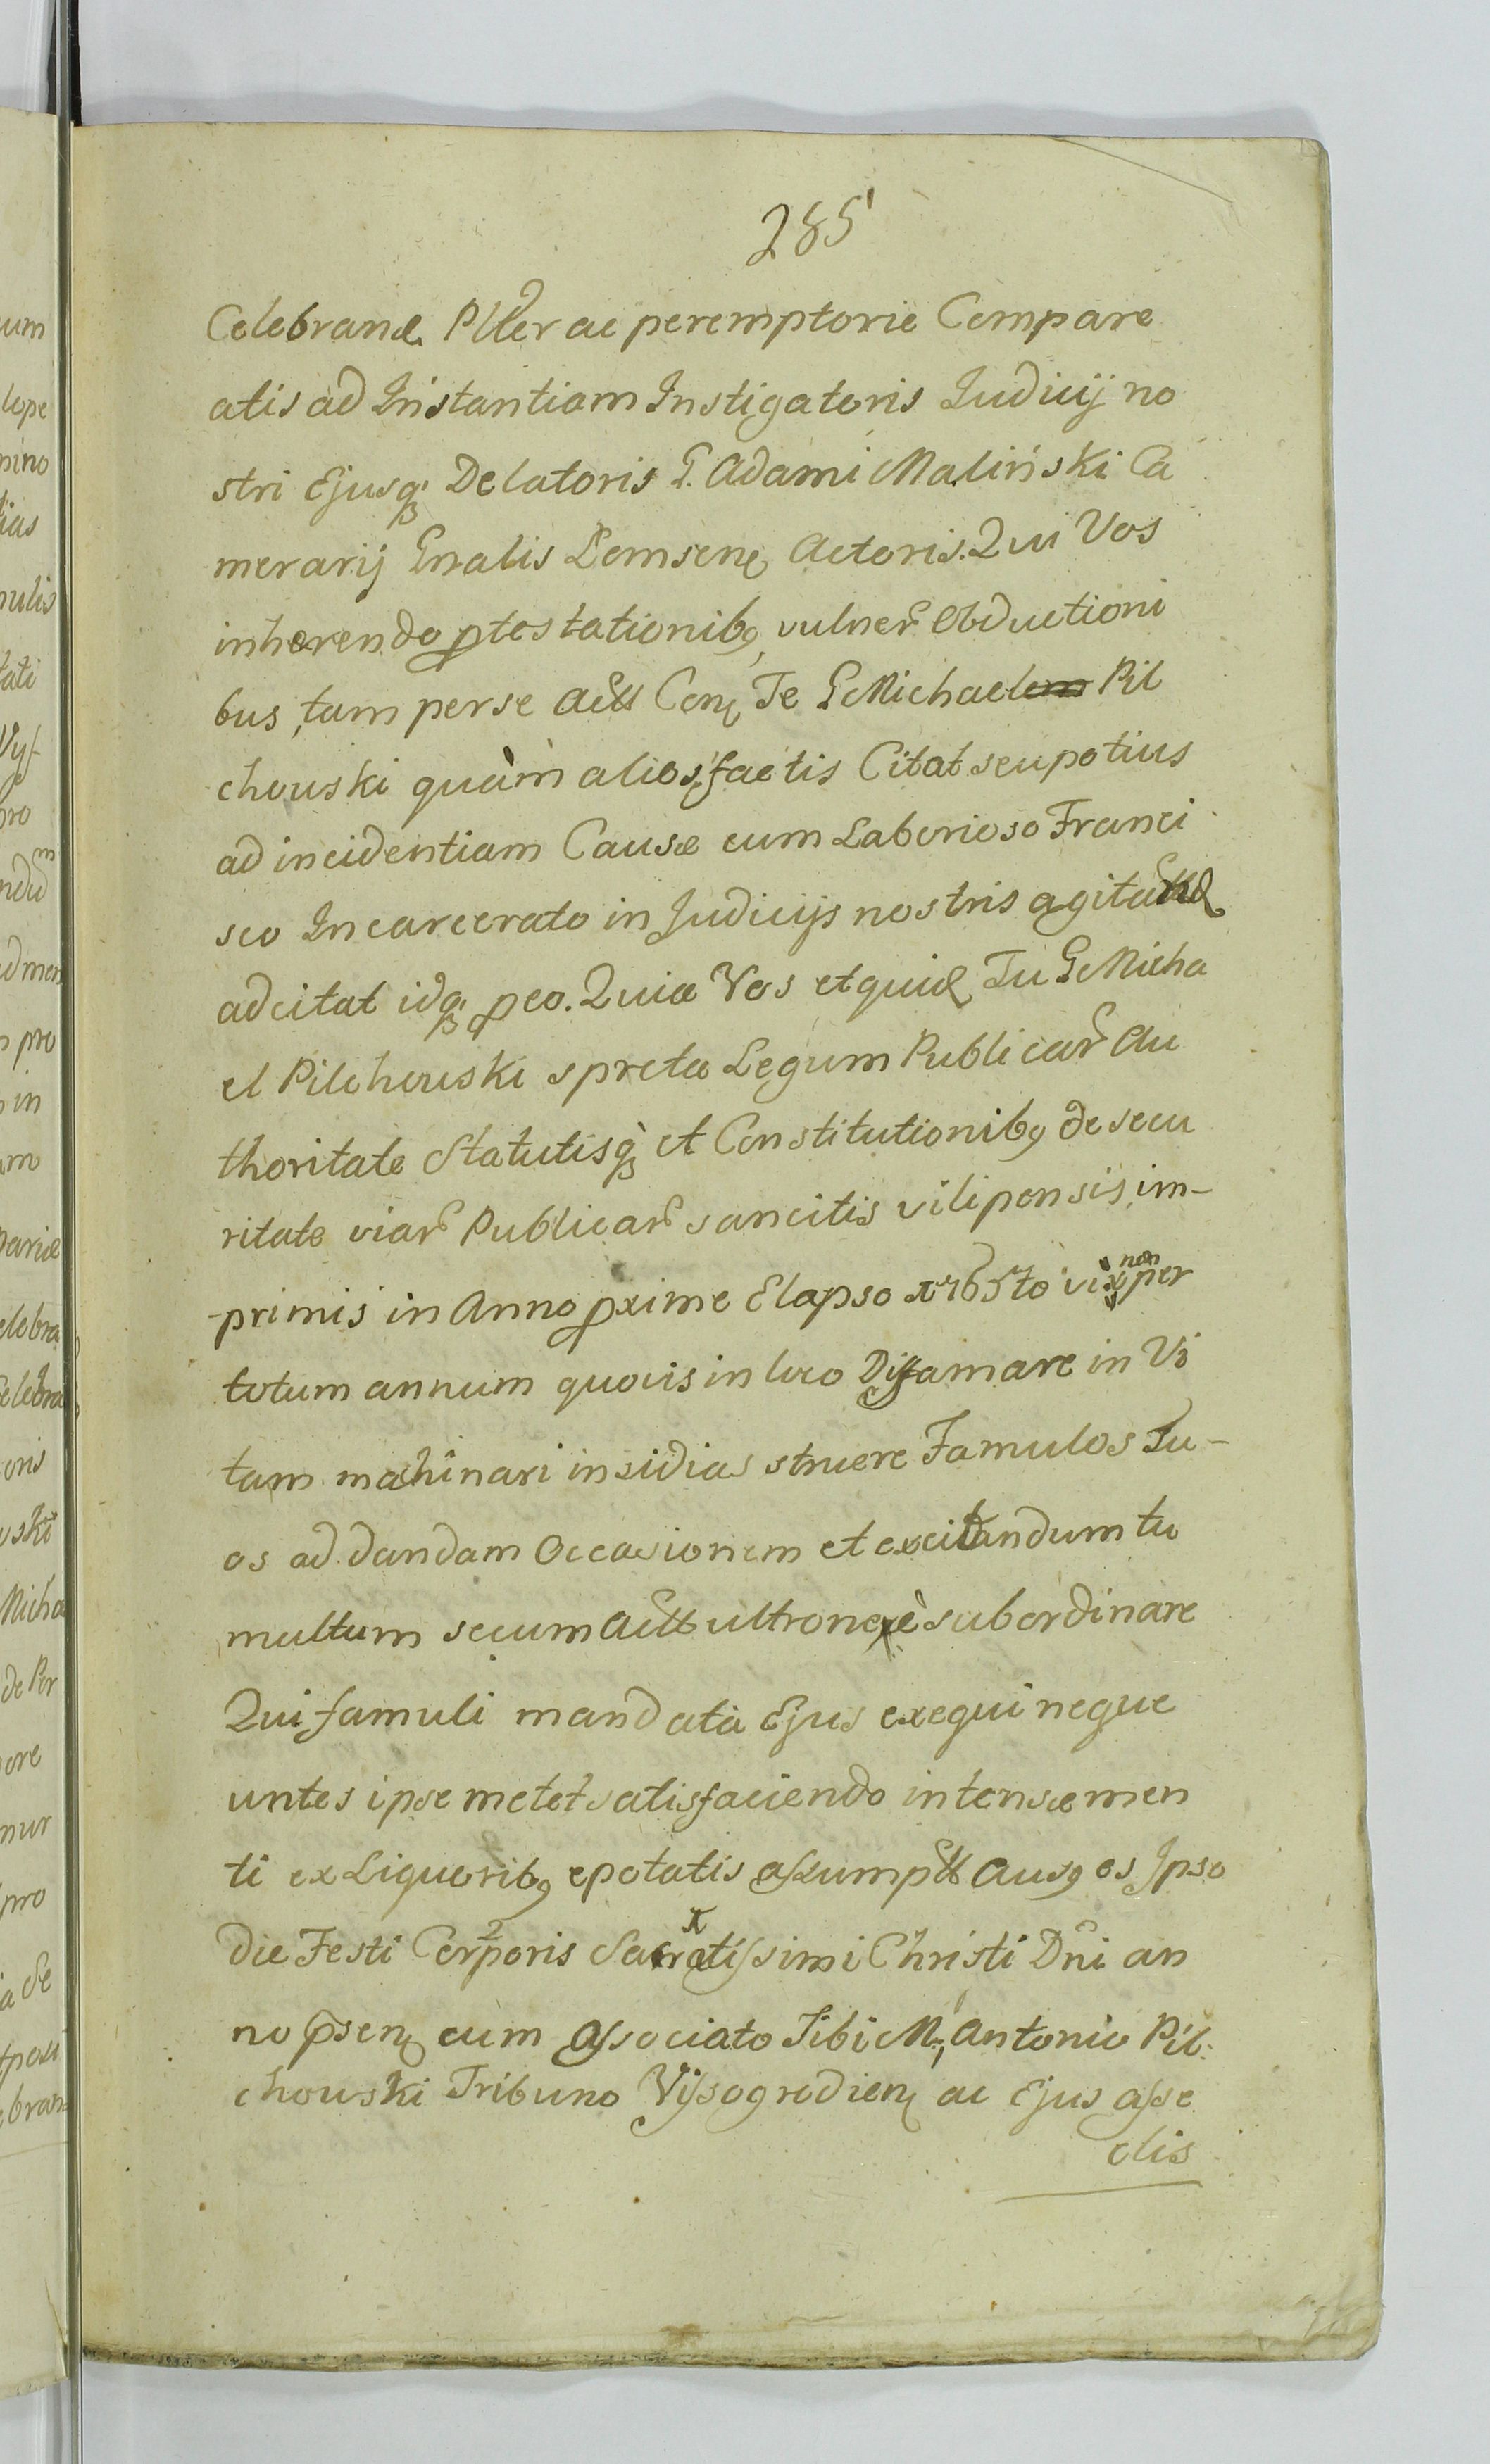 285
Celebrand. Plter ac peremptorie Compare
atis ad Instantiam Instigatoris Judicij no
stri Ejusq; Delatoris G. Adami Maliński Ca
merarij Gnalis Łomsen Actoris. Qui Vos
inherendo ptestationib9 vulner Obductioni
bus, tam per se Actt Con Te G Michaelem Pil
chouski quàm alios factis Citat seu potius
ad incidentiam Causæ cum Laborioso Franci
sco Incarcerato in Judicijs nostris agitand
adcitat idq; p eo. Quia Vos et quid Tu G Micha
el Pilchouski spreta Legum Publicar Au
thoritate Statutisq; et Constitutionib9 de secu
ritate viar Publicar sancitis vilipensis, im-
-primis in Anno pxime Elapso 1765to vix non per
totum annum quovis in loco Diffamare in Vi
tam machinari insidias struere Famulos Tu-
os ad dandam Occasionem et excitandum tu
multum secum Actt ultroneè subordinare
Qui famuli mandata Ejus exequi neque
untes ipsemet et satisfaciendo intensæ men
ti ex Liquorib9 epotatis assumptt Aus9 es Ipso
die Festi Corporis Sacratissimi Christi Dni an
no psen cum Associato Tibi M. Antonio Pil-
chouski Tribuno Vyssogrodien ac Ejus asse
clis